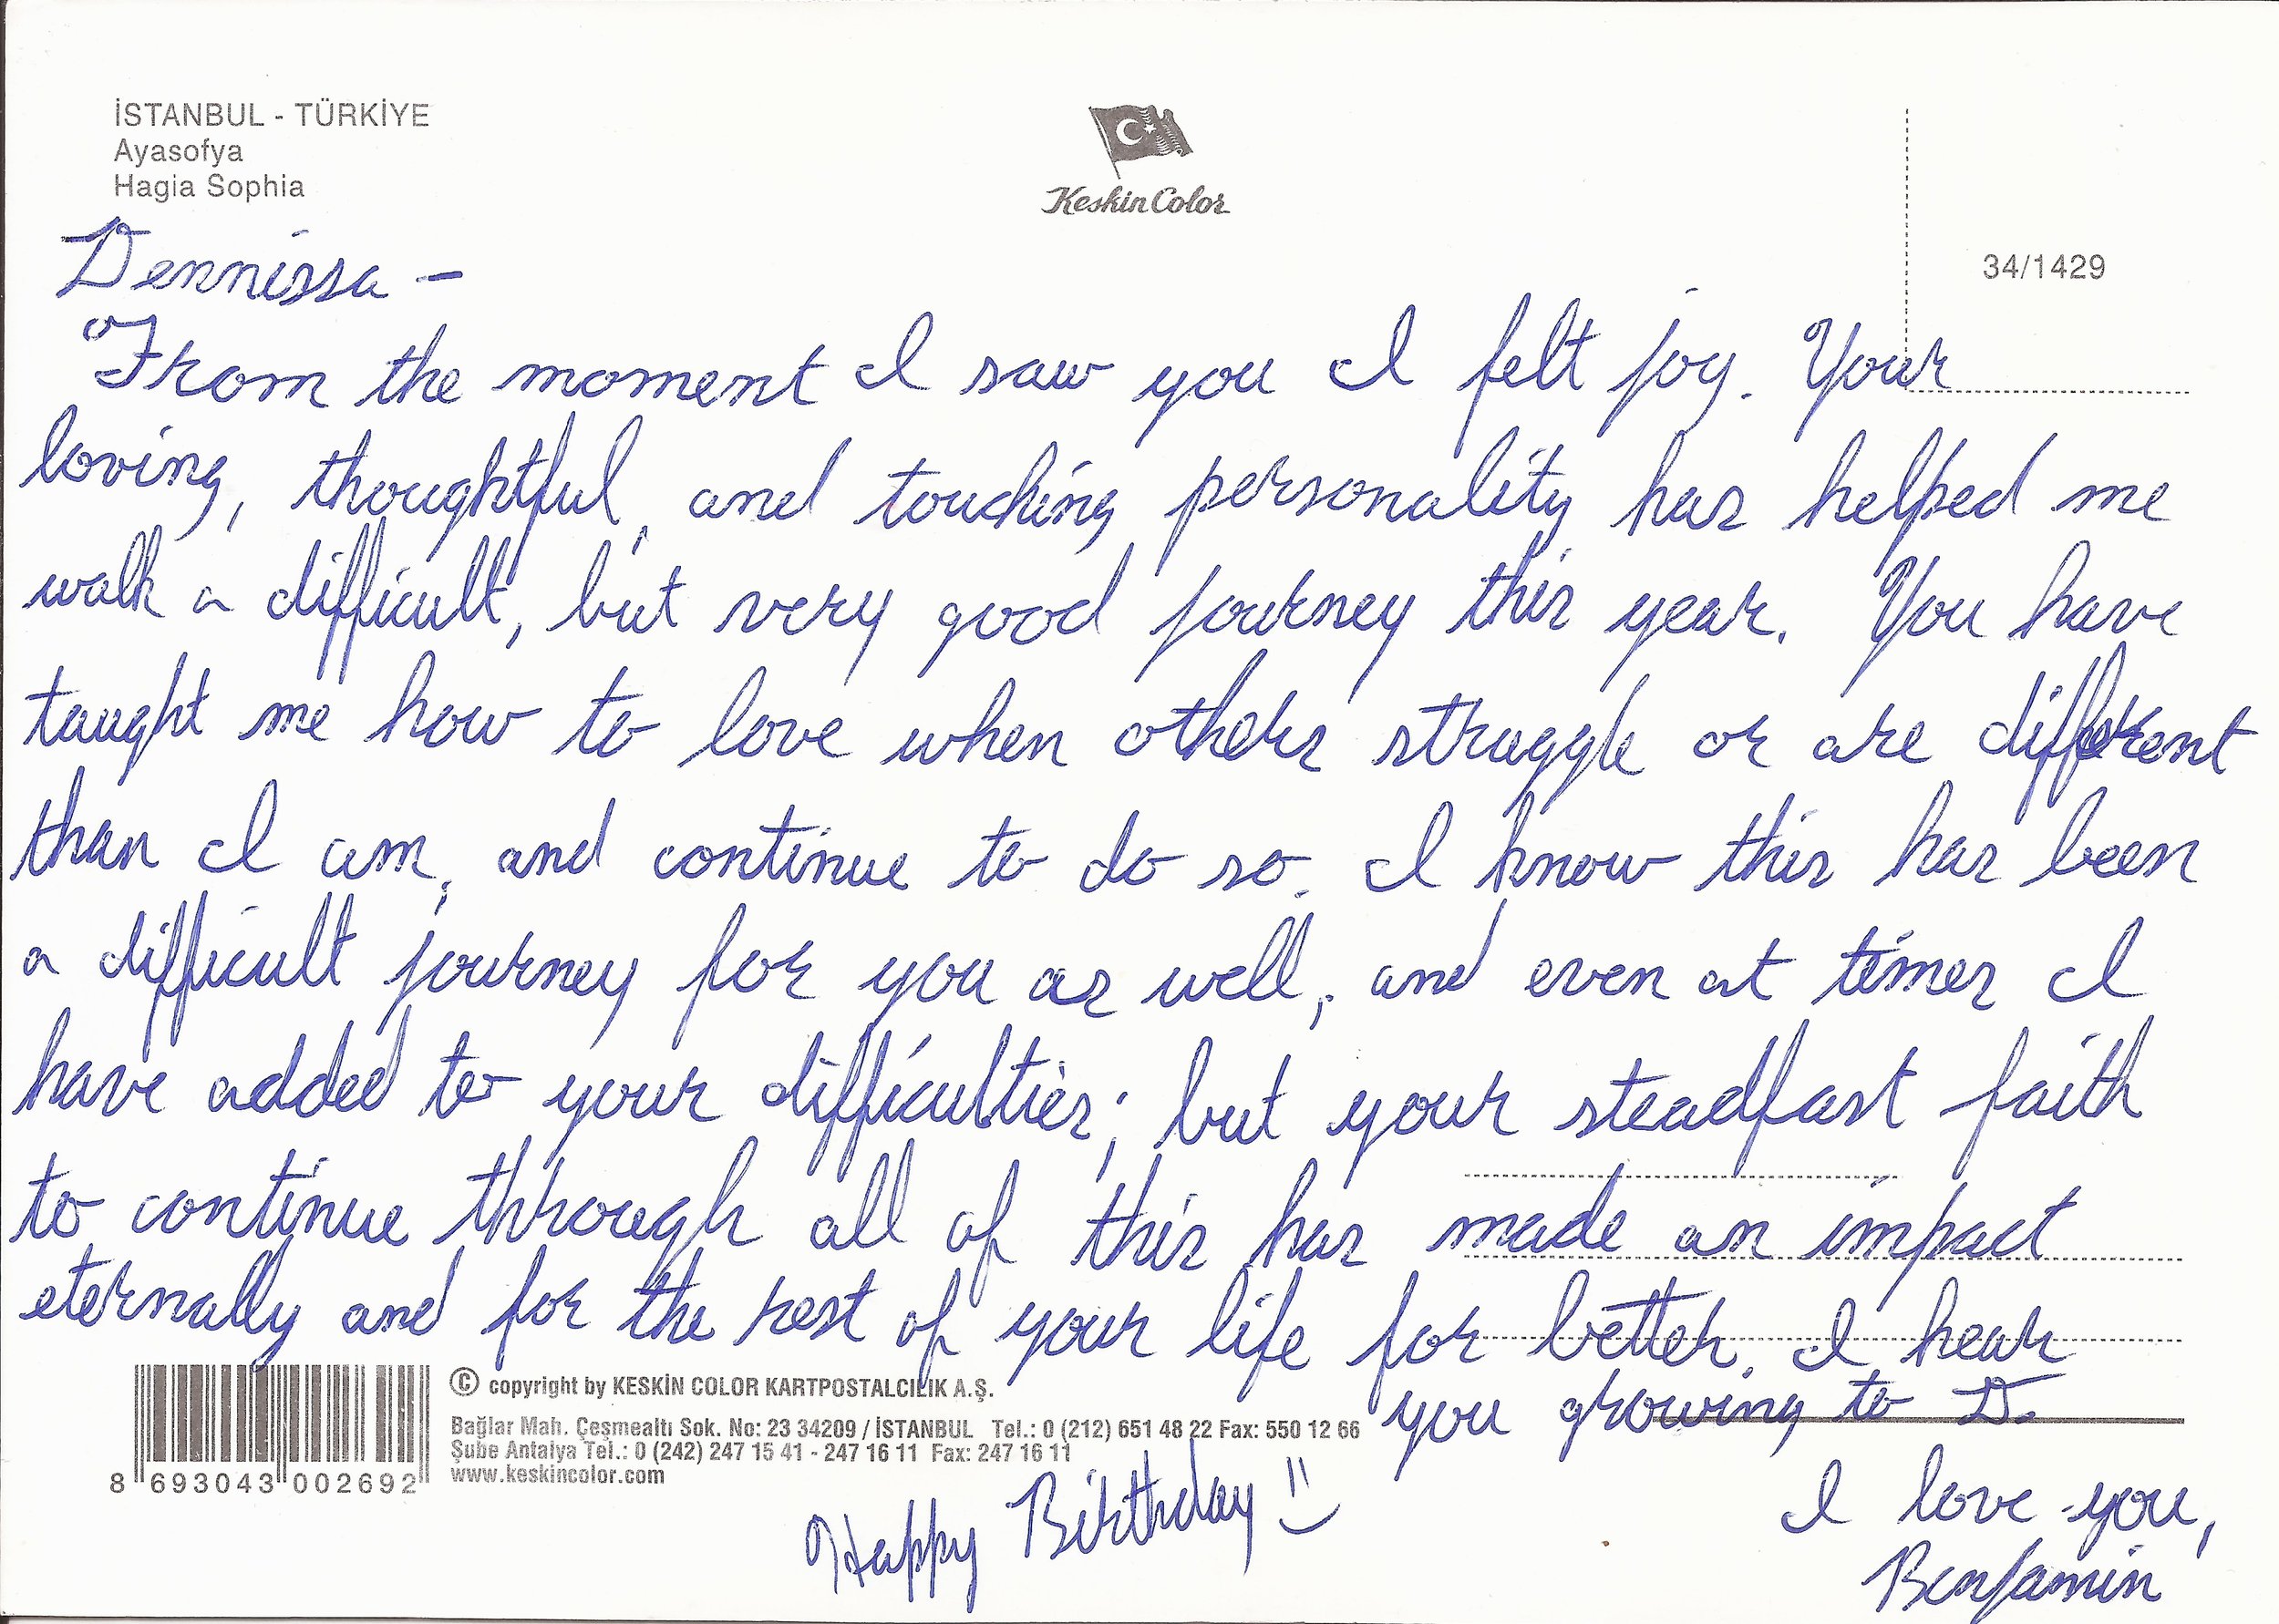 İSTANBUL - TÜRKİYE
Ayasofya
Hagia Sophia
Keskin Color
34/1429
Dennissa -
From the moment I saw you I felt joy. Your
loving, thoughtful, and touching personality has helped me
walk a difficult, but very good journey this year. You have
taught me how to love when others struggle or are different
than I am, and continue to do so. I know this has been
a difficult journey for you as well, and even at times I
have added to your difficulties; but your steadfast faith
to continue through all of this has made an impact
eternally and for the rest of your life for better. I hear
you growing to D.
I love you,
Benjamin
Happy Birthday
8 693043 002692
© copyright by KESKİN COLOR KARTPOSTALCILIK A.Ş.
Bağlar Mah. Çeşmealtı Sok. No: 23 34209 / İSTANBUL Tel.: 0 (212) 651 48 22 Fax: 550 12 66
Şube Antalya Tel.: 0 (242) 247 15 41 - 247 16 11 Fax: 247 16 11
www.keskincolor.com